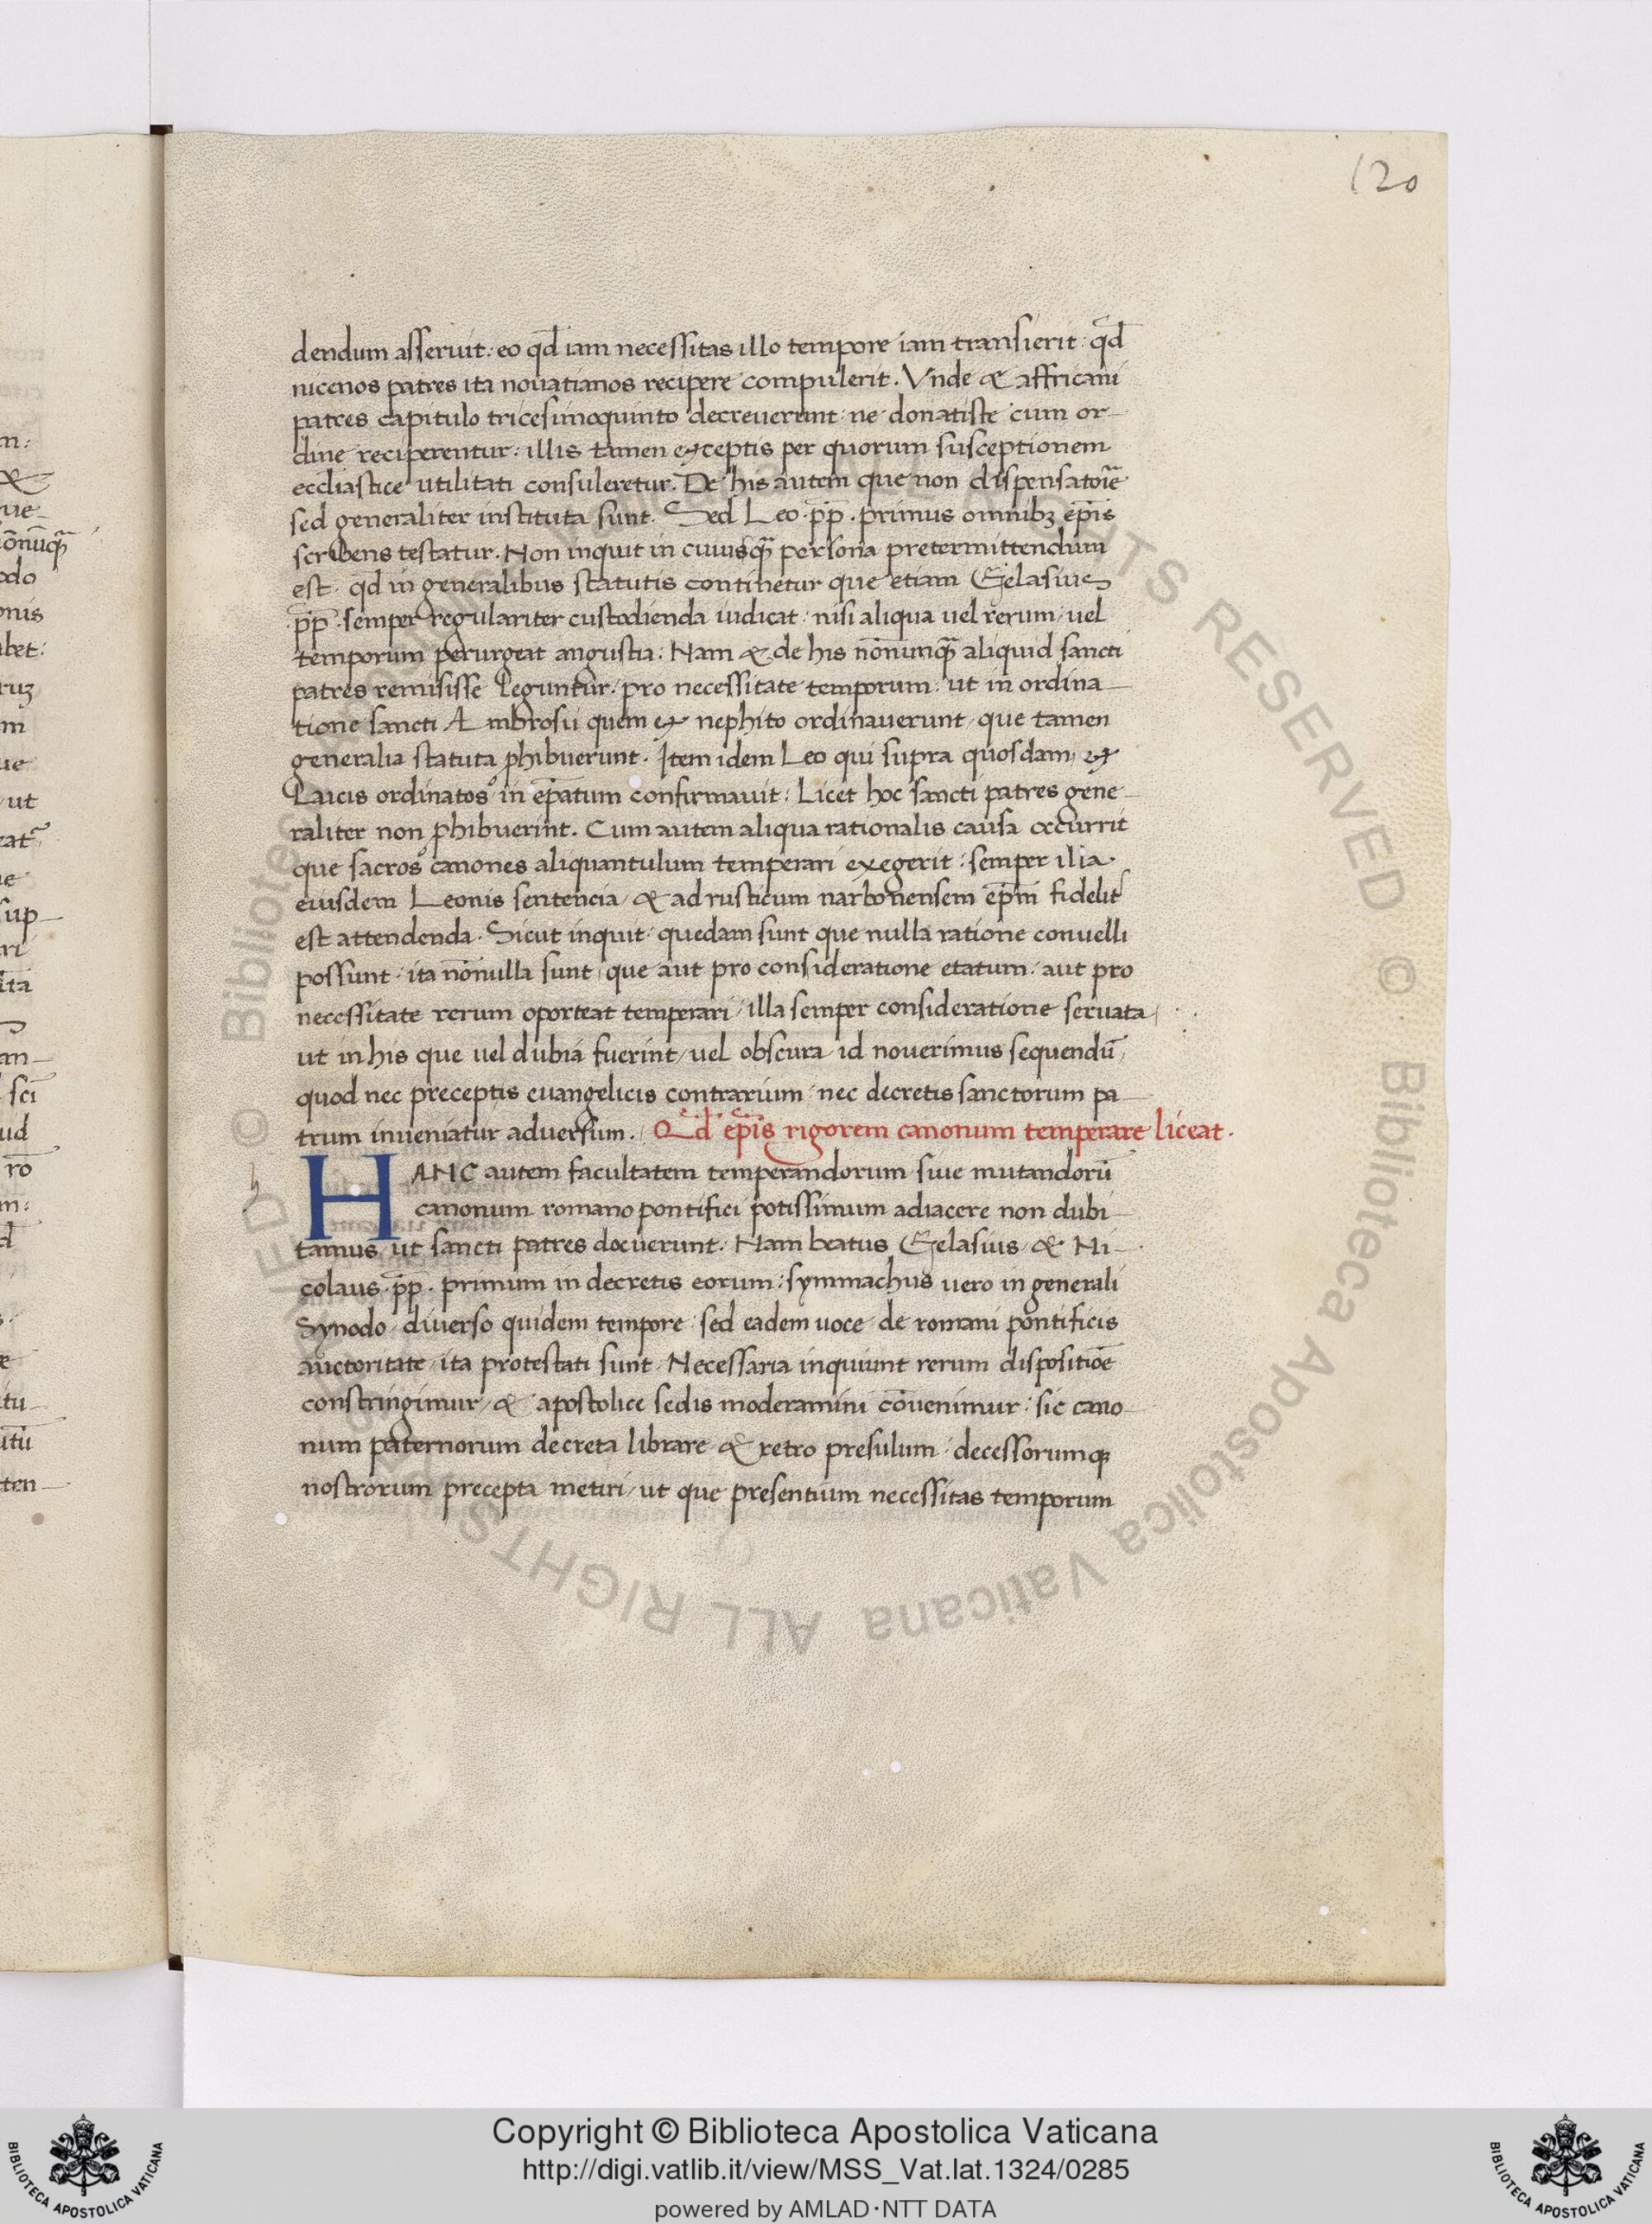 120
dendum asseruit: eo qd̄ iam necessitas illo tempore iam transierit: qd̄
nicenos patres ita nouatianos recipere compulerit. Vnde & affricani
patres capitulo tricesimoquinto decreuerunt: ne donatiste cum or-
dine reciperentur: illis tamen exceptis per quorum susceptionem
eccliastice utilitati consuleretur. De his autem que non dispensatorie
sed generaliter instituta sunt. Sed Leo .pp̄. primus omnibꝫ ep̄is
scribens testatur. Non inquit in cuiusq̄ persona pretermittendum
est qd̄ in generalibus statutis continetur que etiam Gelasius
.pp̄. semper regulariter custodienda iudicat: nisi aliqua uel rerum/ uel
temporum perurgeat angustia: Nam & de his nōnunq̄ aliquid sancti
patres remisisse leguntur/ pro necessitate temporum: ut in ordina-
tione sancti Ambrosii quem ex nephito ordinauerunt/ que tamen
generalia statuta ꝓhibuerunt. Item idem Leo qui supra quosdam/ ex
Laicis ordinatos in ep̄atum confirmauit: Licet hoc sancti patres gene-
raliter non ꝓhibuerint. Cum autem aliqua rationalis causa occurrit
que sacros canones aliquantulum temperari exegerit: semper ilia
eiusdem Leonis sentencia/ & ad rusticum narbonensem ep̄m fidelit̄
est attendenda. Sicut inquit quedam sunt que nulla ratione conuelli
possunt: ita nōnulla sunt/ que aut pro consideratione etatum/ aut pro
necessitate rerum oporteat temperari/ illa semper consideratione seruata/
ut in his que uel dubia fuerint/ uel obscura id nouerimus sequendū/
quod nec preceptis euangelicis contrarium: nec decretis sanctorum pa-
trum inueniatur aduersum. Qd̄ ep̄is rigorem canonum temperare liceat.
HANC autem facultatem temperandorum siue mutandorū
canonum romano pontifici potissimum adiacere non dubi-
tamus/ ut sancti patres docuerunt: Nam beatus Gelasius/ & Ni-
colaus .pp̄. primum in decretis eorum: symmachus uero in generali
Synodo diuerso quidem tempore sed eadem uoce de romani pontificis
auctoritate/ ita protestati sunt. Necessaria inquiunt rerum dispositiōe
constringimur/ & apostolice sedis moderamini cōuenimur: sic cano-
num paternorum decreta librare & retro presulum decessorumqꝫ
nostrorum precepta metiri/ ut que presentium necessitas temporum
Copyright © Biblioteca Apostolica Vaticana
http://digi.vatlib.it/view/MSS_Vat.lat.1324/0285
powered by AMLAD·NTT DATA